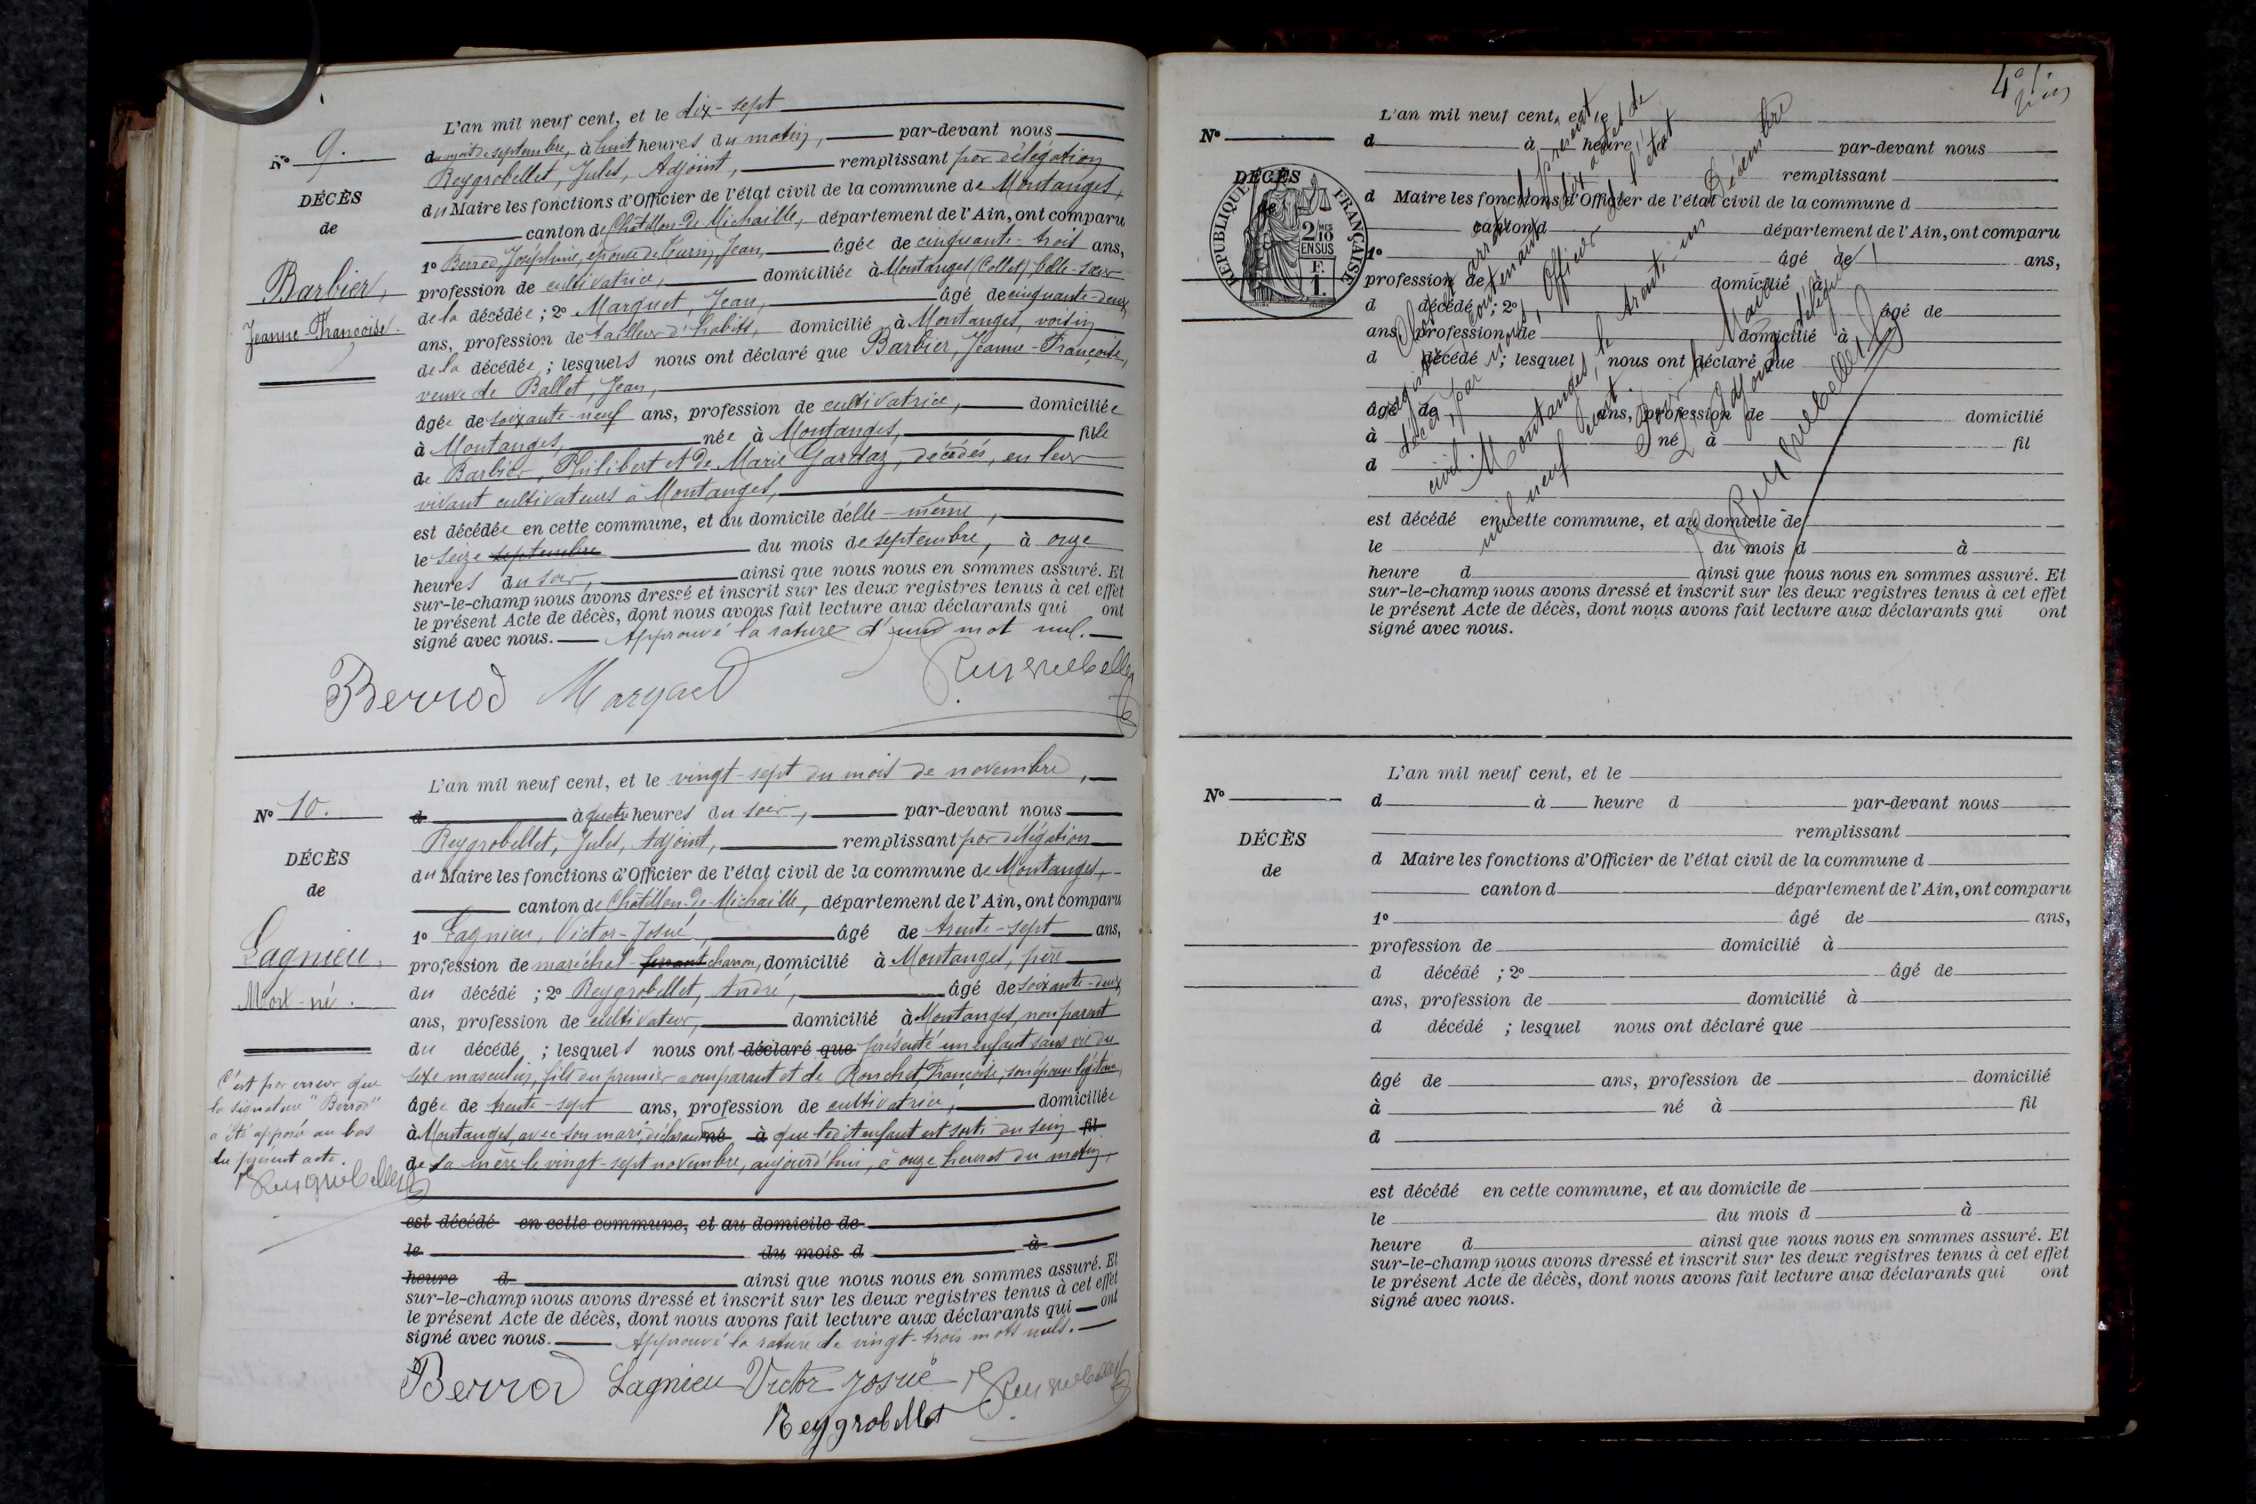 L'an mil neuf cent, et le dix-sept
N° 9.
du mois de septembre, à huit heures du matin, par-devant nous
Reygrobellet, Jules, Adjoint, remplissant par délégation
DÉCÈS
du Maire les fonctions d'Officier de l'état civil de la commune de Montanges,
de
canton de Châtillon-de-Michaille, département de l'Ain, ont comparu
1° Berrod Joséphine, épouse de Jean, âgée de cinquante-trois ans,
Barbier,
profession de cultivatrice, domiciliée à Montanges (Collet), belle-sœur
Jeanne-Françoise.
de la décédée ; 2° Marquet, Jean, âgé de cinquante-deux
ans, profession de tailleur d'habits, domicilié à Montanges, voisin
de la décédée ; lesquels nous ont déclaré que Barbier, Jeanne-Françoise,
veuve de Ballet, Jean,
âgée de soixante-neuf ans, profession de cultivatrice, domiciliée
à Montanges, née à Montanges, fille
de Barbier, Philibert et de Marie Gardaz, décédés, en leur
vivant cultivateurs à Montanges,
est décédée en cette commune, et au domicile d'elle-même,
le seize septembre du mois de septembre, à onze
heures du soir, ainsi que nous nous en sommes assuré. Et
sur-le-champ nous avons dressé et inscrit sur les deux registres tenus à cet effet
le présent Acte de décès, dont nous avons fait lecture aux déclarants qui ont
signé avec nous. Approuvé la rature d'un mot nul.
Berrod Marquet Reygrobellet
L'an mil neuf cent, et le vingt-sept du mois de novembre,
N° 10.
d à quatre heures du soir, par-devant nous
Reygrobellet, Jules, Adjoint, remplissant par délégation
DÉCÈS
du Maire les fonctions d'Officier de l'état civil de la commune de Montanges,
de
canton de Châtillon-de-Michaille, département de l'Ain, ont comparu
1° Lagnieu, Victor-Josué, âgé de trente-sept ans,
Lagnieu,
profession de maréchal-ferrant charron, domicilié à Montanges, père
Mort-né.
du décédé ; 2° Reygrobellet, André, âgé de soixante-deux
ans, profession de cultivateur, domicilié à Montanges, non parent
du décédé ; lesquels nous ont déclaré que présenté un enfant sans vie du
sexe masculin, fils du premier comparant et de Ronchet, Françoise, son épouse légitime,
âgée de trente-sept ans, profession de cultivatrice, domiciliée
à Montanges, avec son mari, déclarant né à que ledit enfant est sorti du sein fil
de sa mère le vingt-sept novembre, aujourd'hui, à onze heures du matin,
C'est par erreur que
la signature "Berrod"
a été apposée au bas
du présent acte.
Reygrobellet
est décédé en cette commune, et au domicile de
le du mois d à
heure d ainsi que nous nous en sommes assuré. Et
sur-le-champ nous avons dressé et inscrit sur les deux registres tenus à cet effet
le présent Acte de décès, dont nous avons fait lecture aux déclarants qui ont
signé avec nous. Approuvé la rature de vingt-trois mots nuls.
Berrod Lagnieu Victor Josué Reygrobellet
Reygrobellet
L'an mil neuf cent, et le
N°
d à heure d par-devant nous
remplissant
DÉCÈS
de
d Maire les fonctions d'Officier de l'état civil de la commune d
canton d département de l'Ain, ont comparu
1° âgé de ans,
profession de domicilié à
d décédé ; 2° âgé de
ans, profession de domicilié à
d décédé ; lesquel nous ont déclaré que
âgé de ans, profession de domicilié
à né à fil
d
est décédé en cette commune, et au domicile de
le du mois d à
heure d ainsi que nous nous en sommes assuré. Et
sur-le-champ nous avons dressé et inscrit sur les deux registres tenus à cet effet
le présent Acte de décès, dont nous avons fait lecture aux déclarants qui ont
signé avec nous.
RÉPUBLIQUE FRANÇAISE
2/10 EN SUS
F. 1.
Clos et arrêté le présent
registre contenant dix actes de
décès, par nous, Officier de l'état
civil.
Montanges, le trente-un Décembre
mil neuf cent.
Pour le Maire
L'Adjoint délégué,
Reygrobellet
L'an mil neuf cent, et le
N°
d à heure d par-devant nous
remplissant
DÉCÈS
d Maire les fonctions d'Officier de l'état civil de la commune d
de
canton d département de l'Ain, ont comparu
1° âgé de ans,
profession de domicilié à
d décédé ; 2° âgé de
ans, profession de domicilié à
d décédé ; lesquel nous ont déclaré que
âgé de ans, profession de domicilié
à né à fil
d
est décédé en cette commune, et au domicile de
le du mois d à
heure d ainsi que nous nous en sommes assuré. Et
sur-le-champ nous avons dressé et inscrit sur les deux registres tenus à cet effet
le présent Acte de décès, dont nous avons fait lecture aux déclarants qui ont
signé avec nous.